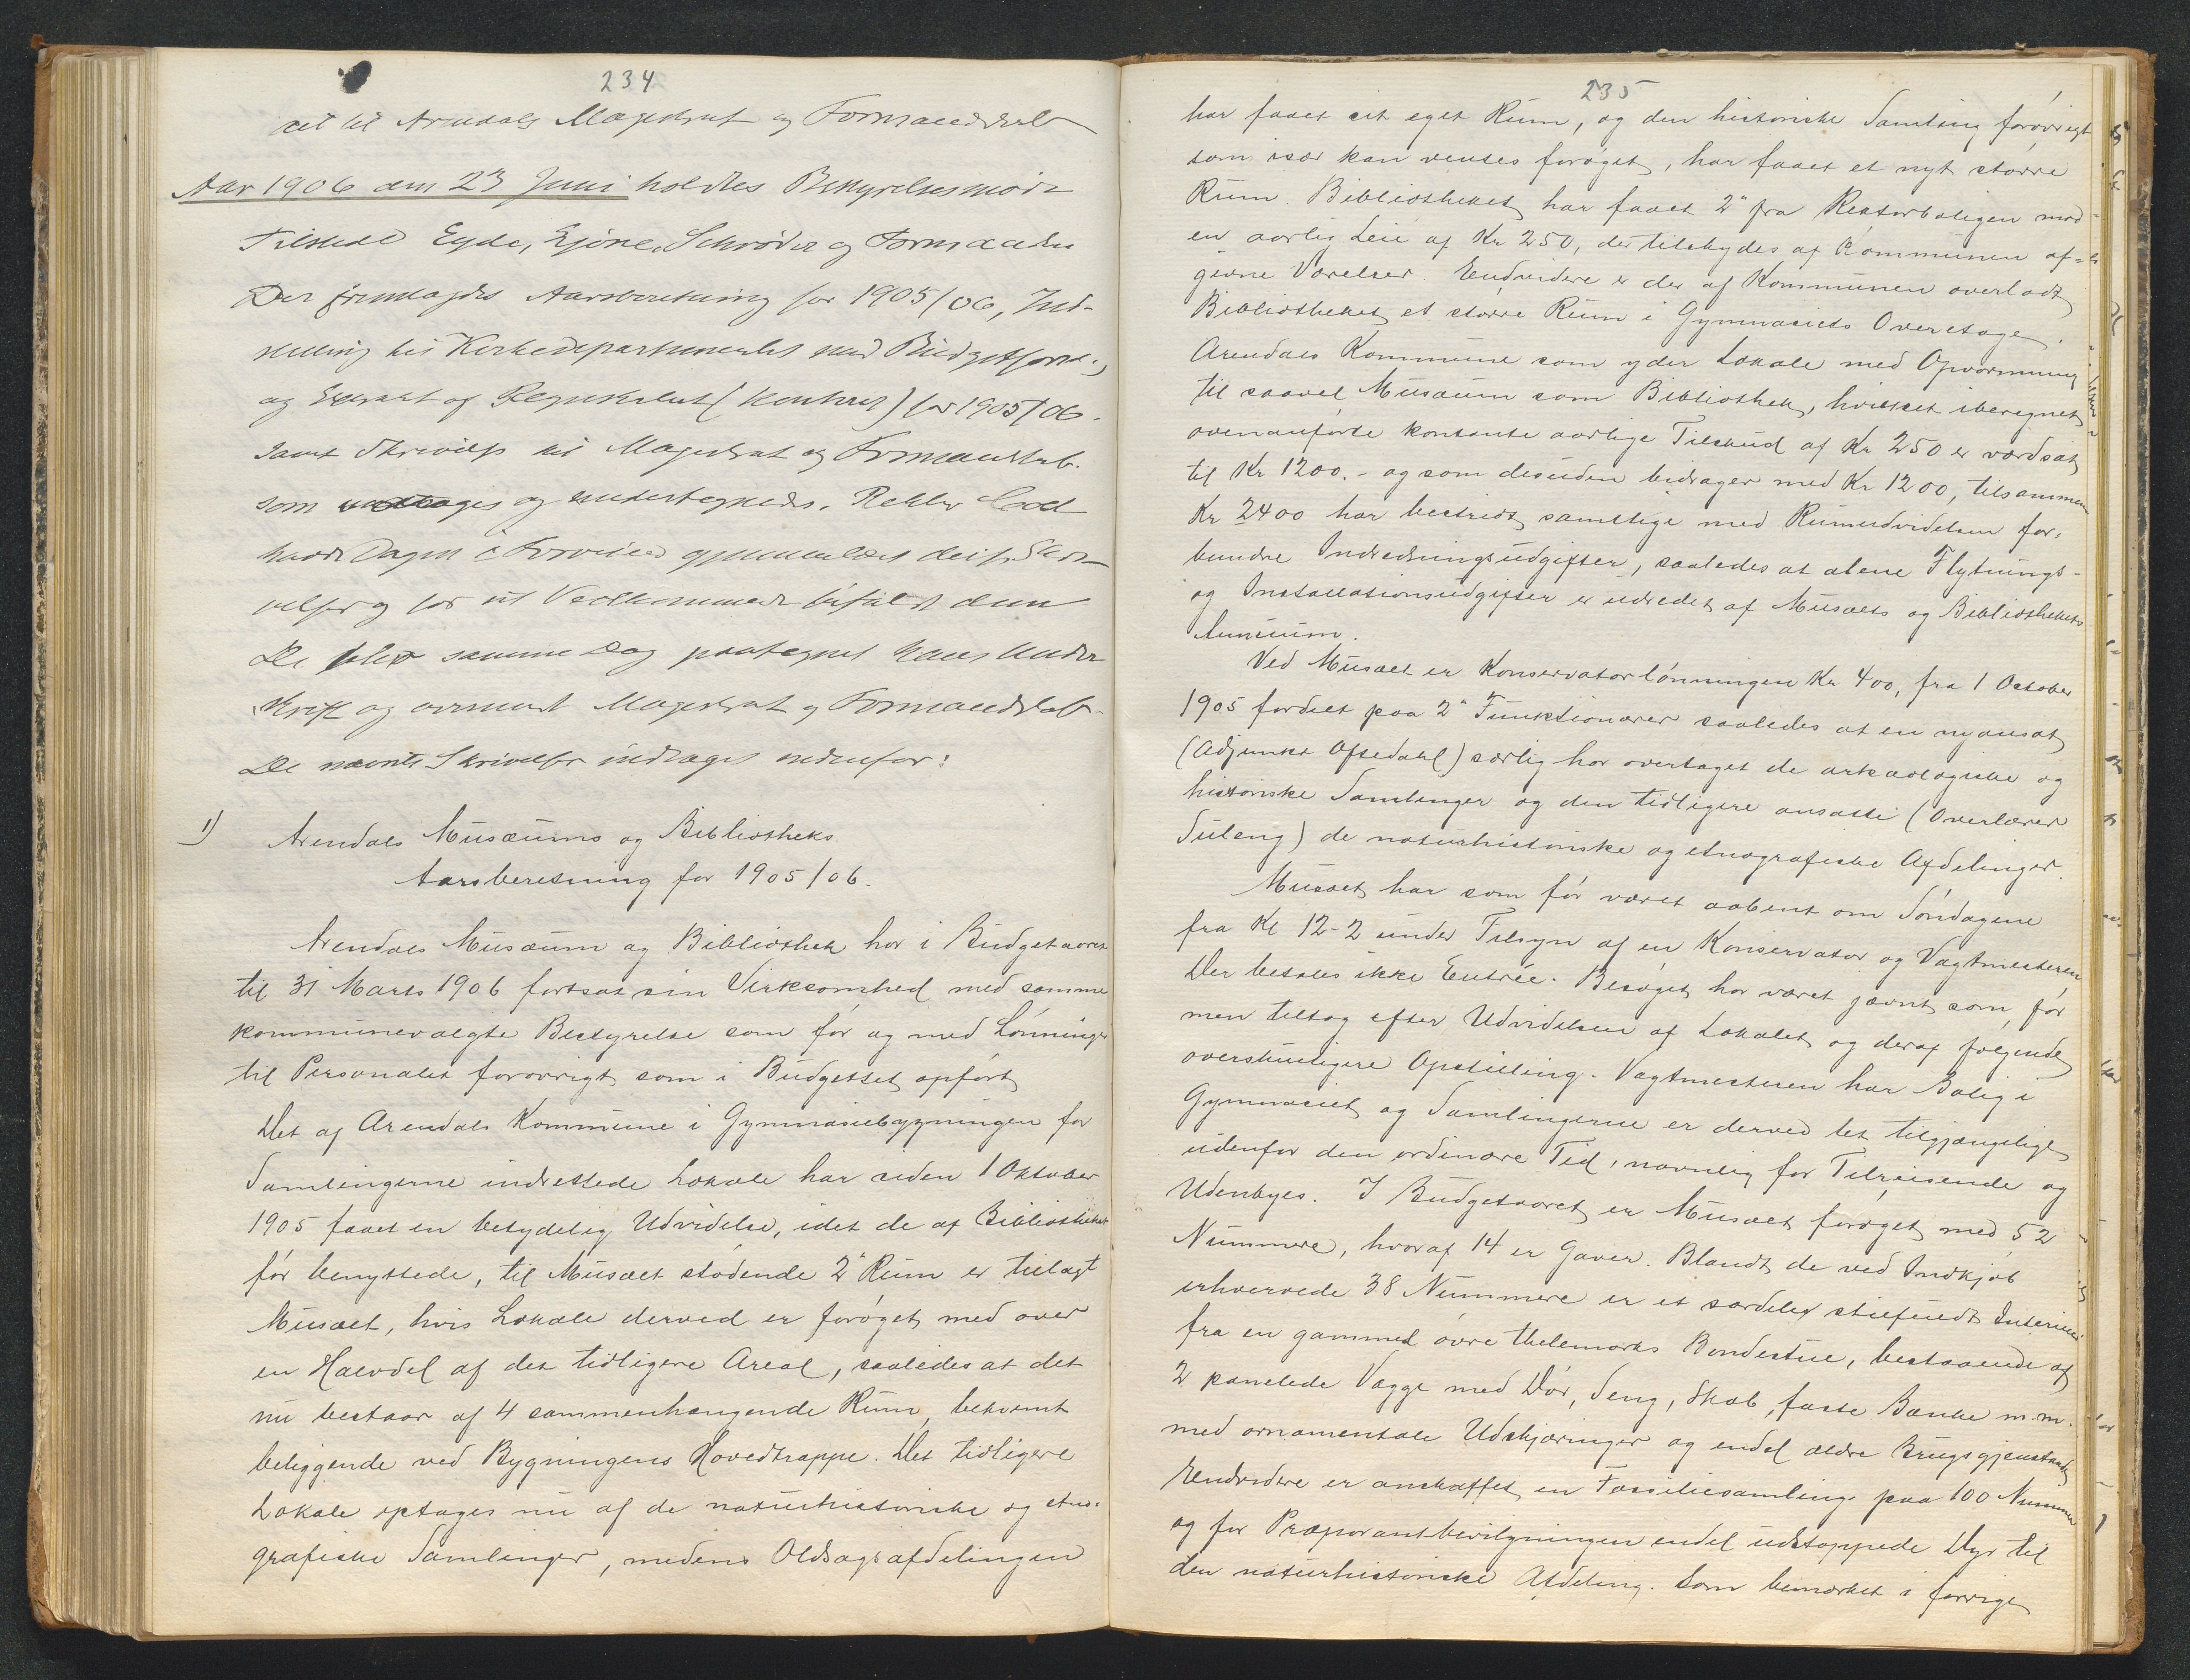 234
til Arendals Magistrat og Formandskab
Aar 1906 den 23 Juni holdtes Bestyrelsesmøde
Tilstede Eyde, Ejøne, Schrøder og Formanden
Der fremlagdes Aarsberetning for 1905/06, Ind-
stilling til Kirkedepartementet med Budgetforsl.,
og Extrakt af Regnskabet (Kontrol) for 1905/06.
samt Skrivelse til Magistrat og Formandskab.
som vedtoges og undertegnedes. Rektor
havde Dagen i Forveien gjennemlæst disse Skri-
velser og for sit Vedkommende bifaldt dem
De blev samme Dag paategnet hans Under-
skrift og oversendt Magistrat og Formandskab.
De nævnte Skrivelser indtages nedenfor:
1) Arendals Musæums og Bibliotheks
Aarsberetning for 1905/06.
Arendals Musæum og Bibliothek har i Budgetaaret
til 31 Marts 1906 fortsat sin Virksomhed med samme
kommunevalgte Bestyrelse som før og med Lønninger
til Personalet forøvrigt som i Budgettet opført
Det af Arendals Kommune i Gymnasiebygningen for
Samlingerne indrettede Lokale har siden 1 Oktober
1905 faaet en betydelig Udvidelse, idet de af Bibliotheket
før benyttede, til Musæet stødende 2 Rum er tillagt
Musæet, hvis Lokale derved er forøget med over
en Halvdel af det tidligere Areal, saaledes at det
nu bestaar af 4 sammenhængende Rum, bekvemt
beliggende ved Bygningens Hovedtrappe. Det tidligere
Lokale optages nu af de naturhistoriske og etno-
grafiske Samlinger, medens Oldsagsafdelingen
235
har faaet sit eget Rum, og den historiske Samling forøvrigt
som især kan ventes forøget, har faaet et nyt større
Rum. Bibliotheket har faaet 2 fra Rektorboligen mod
en aarlig Leie af Kr 250, der tilskydes af Kommunen af-
givne Værelser. Endvidere er der af Kommunen overladt
Bibliotheket et større Rum i Gymnasiets Overetage.
Arendals Kommune som yder Lokale med Opvarmning
til saavel Musæum som Bibliothek, hvilket iberegnet
ovenanførte kontante aarlige Tilskud af Kr 250 er værdsat
til Kr 1200.- og som desuden bidrager med Kr 1200, tilsammen
Kr 2400 har bestridt samtlige med Rumudvidelsen for-
bundne Indredningsudgifter, saaledes at alene Flytnings-
og Installationsudgifter er udredet af Musæets og Bibliothekets
Annuum.
Ved Musæet er Konservatorlønningen Kr 400, fra 1 October
1905 fordelt paa 2 Funktionærer saaledes at en nyansat
(Adjunkt Ofsedahl) særlig har overtaget de arkæologiske og
historiske Samlinger og den tidligere ansatte (Overlærer
Suleng) de naturhistoriske og etnografiske Afdelinger.
Musæet har som før været aabent om Søndagene
fra Kl 12-2 under Tilsyn af en Konservator og Vagtmesteren
Der betales ikke Entrée. Besøget har været jævnt som før
men tiltog efter Udvidelsen af Lokalet og deraf følgende
overskueligere Opstilling. Vagtmesteren har Bolig i
Gymnasiet og Samlingerne er derved let tilgjængelige
udenfor den ordinære Tid, navnlig for Tilreisende og
Udenbyes. I Budgetaaret er Musæet forøget med 52
Nummere, hvoraf 14 er Gaver. Blandt de ved Indkjøb
erhvervede 38 Nummere er et særdeles stilfuldt Interieur
fra en gammel øvre Thelemarks Bondestue, bestaaende af
2 panelede Vægge med Dør, Seng, Skab, faste Bænke m.m.
med ornamentale Udskjæringer og endel ældre Brugsgjenstande
Endvidere er anskaffet en Fossiliesamling paa 100 Nummer
og for Præparantbevilgningen endel udstoppede Dyr til
den naturhistoriske Afdeling. Som bemærket i forrige